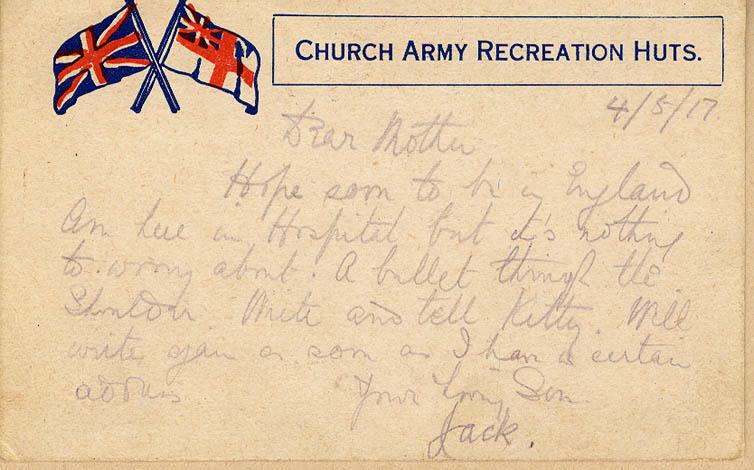 CHURCH ARMY RECREATION HUTS.
4/5/17.
Dear Mother
Hope soon to be in England
Am here in Hospital but it's nothing
to worry about. A bullet through the
Shoulder. Write and tell Kitty. Will
write again as soon as I have a certain
address Your loving Son
Jack.